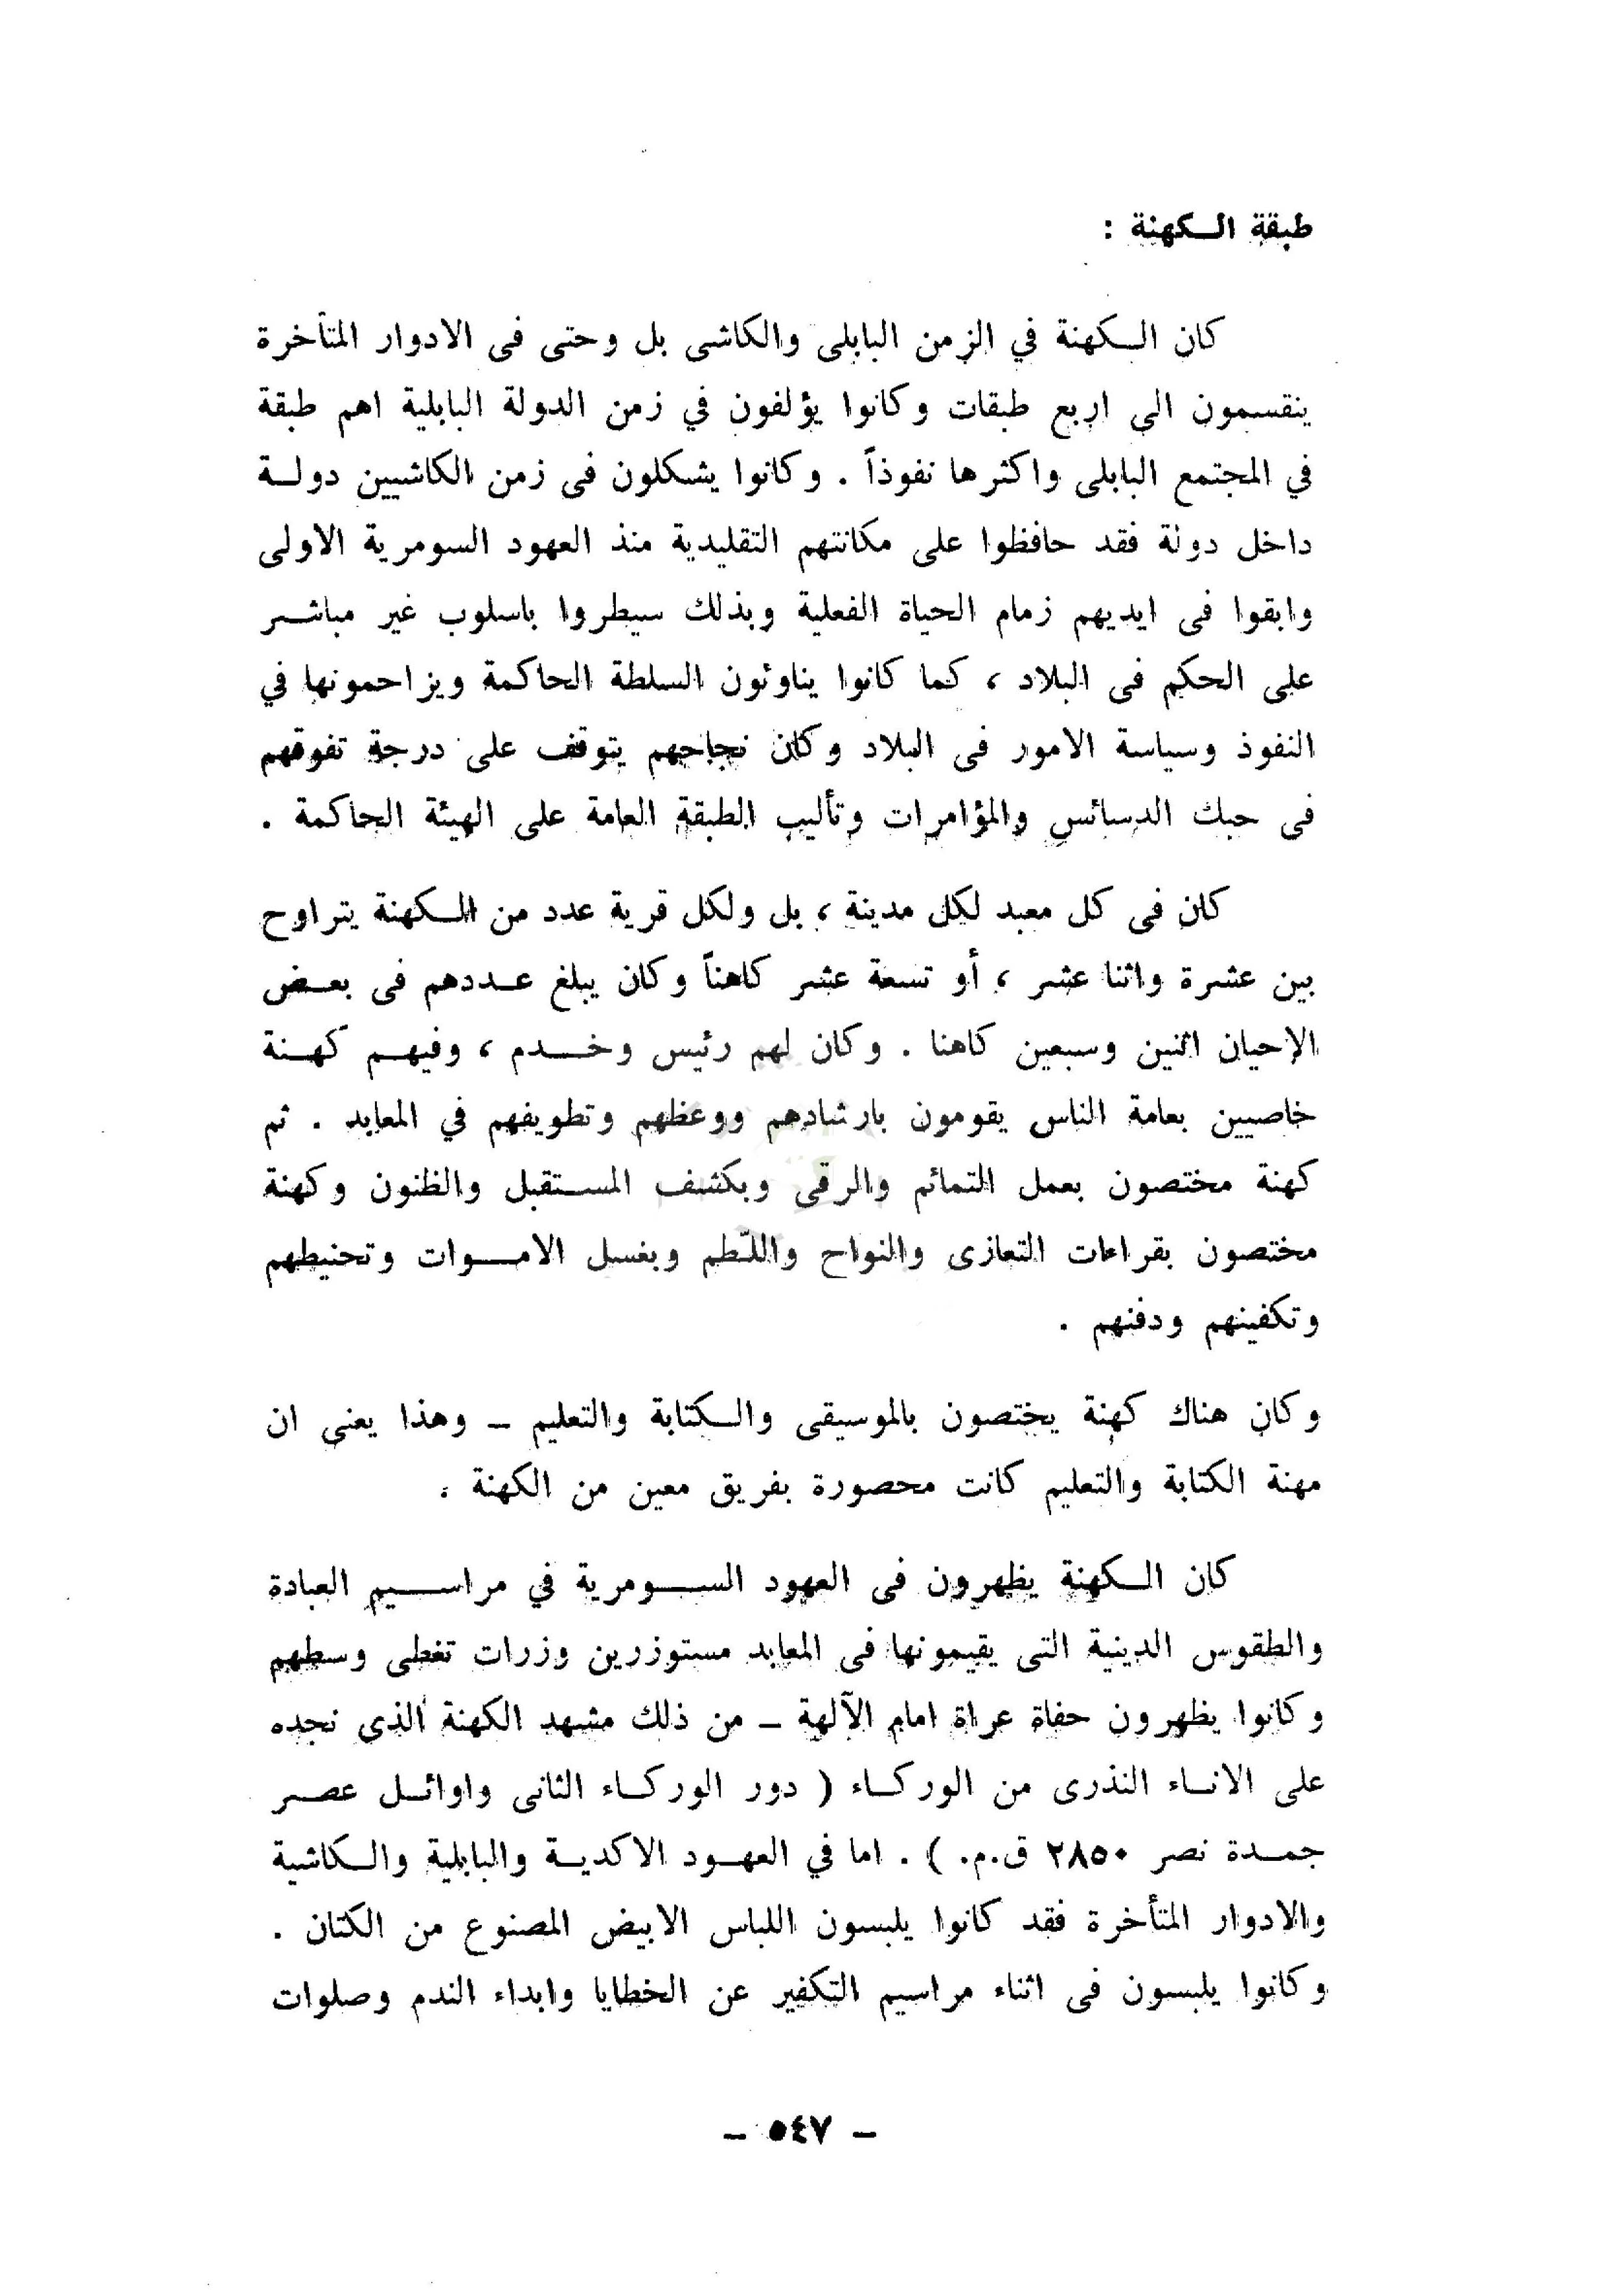 طبقة الكهنة :
كان الكهنة في الزمن البابلى والكاشى بل وحتى فى الادوار المتأخرة
ينقسمون الى اربع طبقات وكانوا يؤلفون في زمن الدولة البابلية اهم طبقة
في المجتمع البابلى واكثرها نفوذاً . وكانوا يشكلون فى زمن الكاشيين دولة
داخل دولة فقد حافظوا على مكانتهم التقليدية منذ العهود السومرية الاولى
وابقوا فى ايديهم زمام الحياة الفعلية وبذلك سيطروا باسلوب غير مباشر
على الحكم فى البلاد ، كما كانوا يناوئون السلطة الحاكمة ويزاحمونها في
النفوذ وسياسة الامور فى البلاد وكان نجاحهم يتوقف على درجة تفوقهم
فى حبك الدسائس والمؤامرات وتأليب الطبقة العامة على الهيئة الحاكمة .
كان فى كل معبد لكل مدينة ، بل ولكل قرية عدد من الكهنة يتراوح
بين عشرة واثنا عشر ، أو تسعة عشر كاهناً وكان يبلغ عددهم فى بعض
الاحيان اثنين وسبعين كاهنا . وكان لهم رئيس وخدم ، وفيهم كهنة
خاصيين بعامة الناس يقومون بارشادهم ووعظهم وتطويفهم في المعابد . ثم
كهنة مختصون بعمل التمائم والرقى وبكشف المستقبل والظنون وكهنة
مختصون بقراءات التعازى والنواح واللّطم وبغسل الاموات وتحنيطهم
وتكفينهم ودفنهم .
وكان هناك كهنة يختصون بالموسيقى والكتابة والتعليم ــ وهذا يعنى ان
مهنة الكتابة والتعليم كانت محصورة بفريق معين من الكهنة .
كان الكهنة يظهرون فى العهود السومرية في مراسيم العبادة
والطقوس الدينية التى يقيمونها فى المعابد مستوزرين وزرات تغطى وسطهم
وكانوا يظهرون حفاة عراة امام الآلهة ــ من ذلك مشهد الكهنة الذى نجده
على الاناء النذرى من الوركاء ( دور الوركاء الثانى واوائل عصر
جمدة نصر ٢٨٥٠ ق.م. ) . اما في العهود الاكدية والبابلية والكاشية
والادوار المتأخرة فقد كانوا يلبسون اللباس الابيض المصنوع من الكتان .
وكانوا يلبسون فى اثناء مراسيم التكفير عن الخطايا وابداء الندم وصلوات
ــ ٥٤٧ ــ